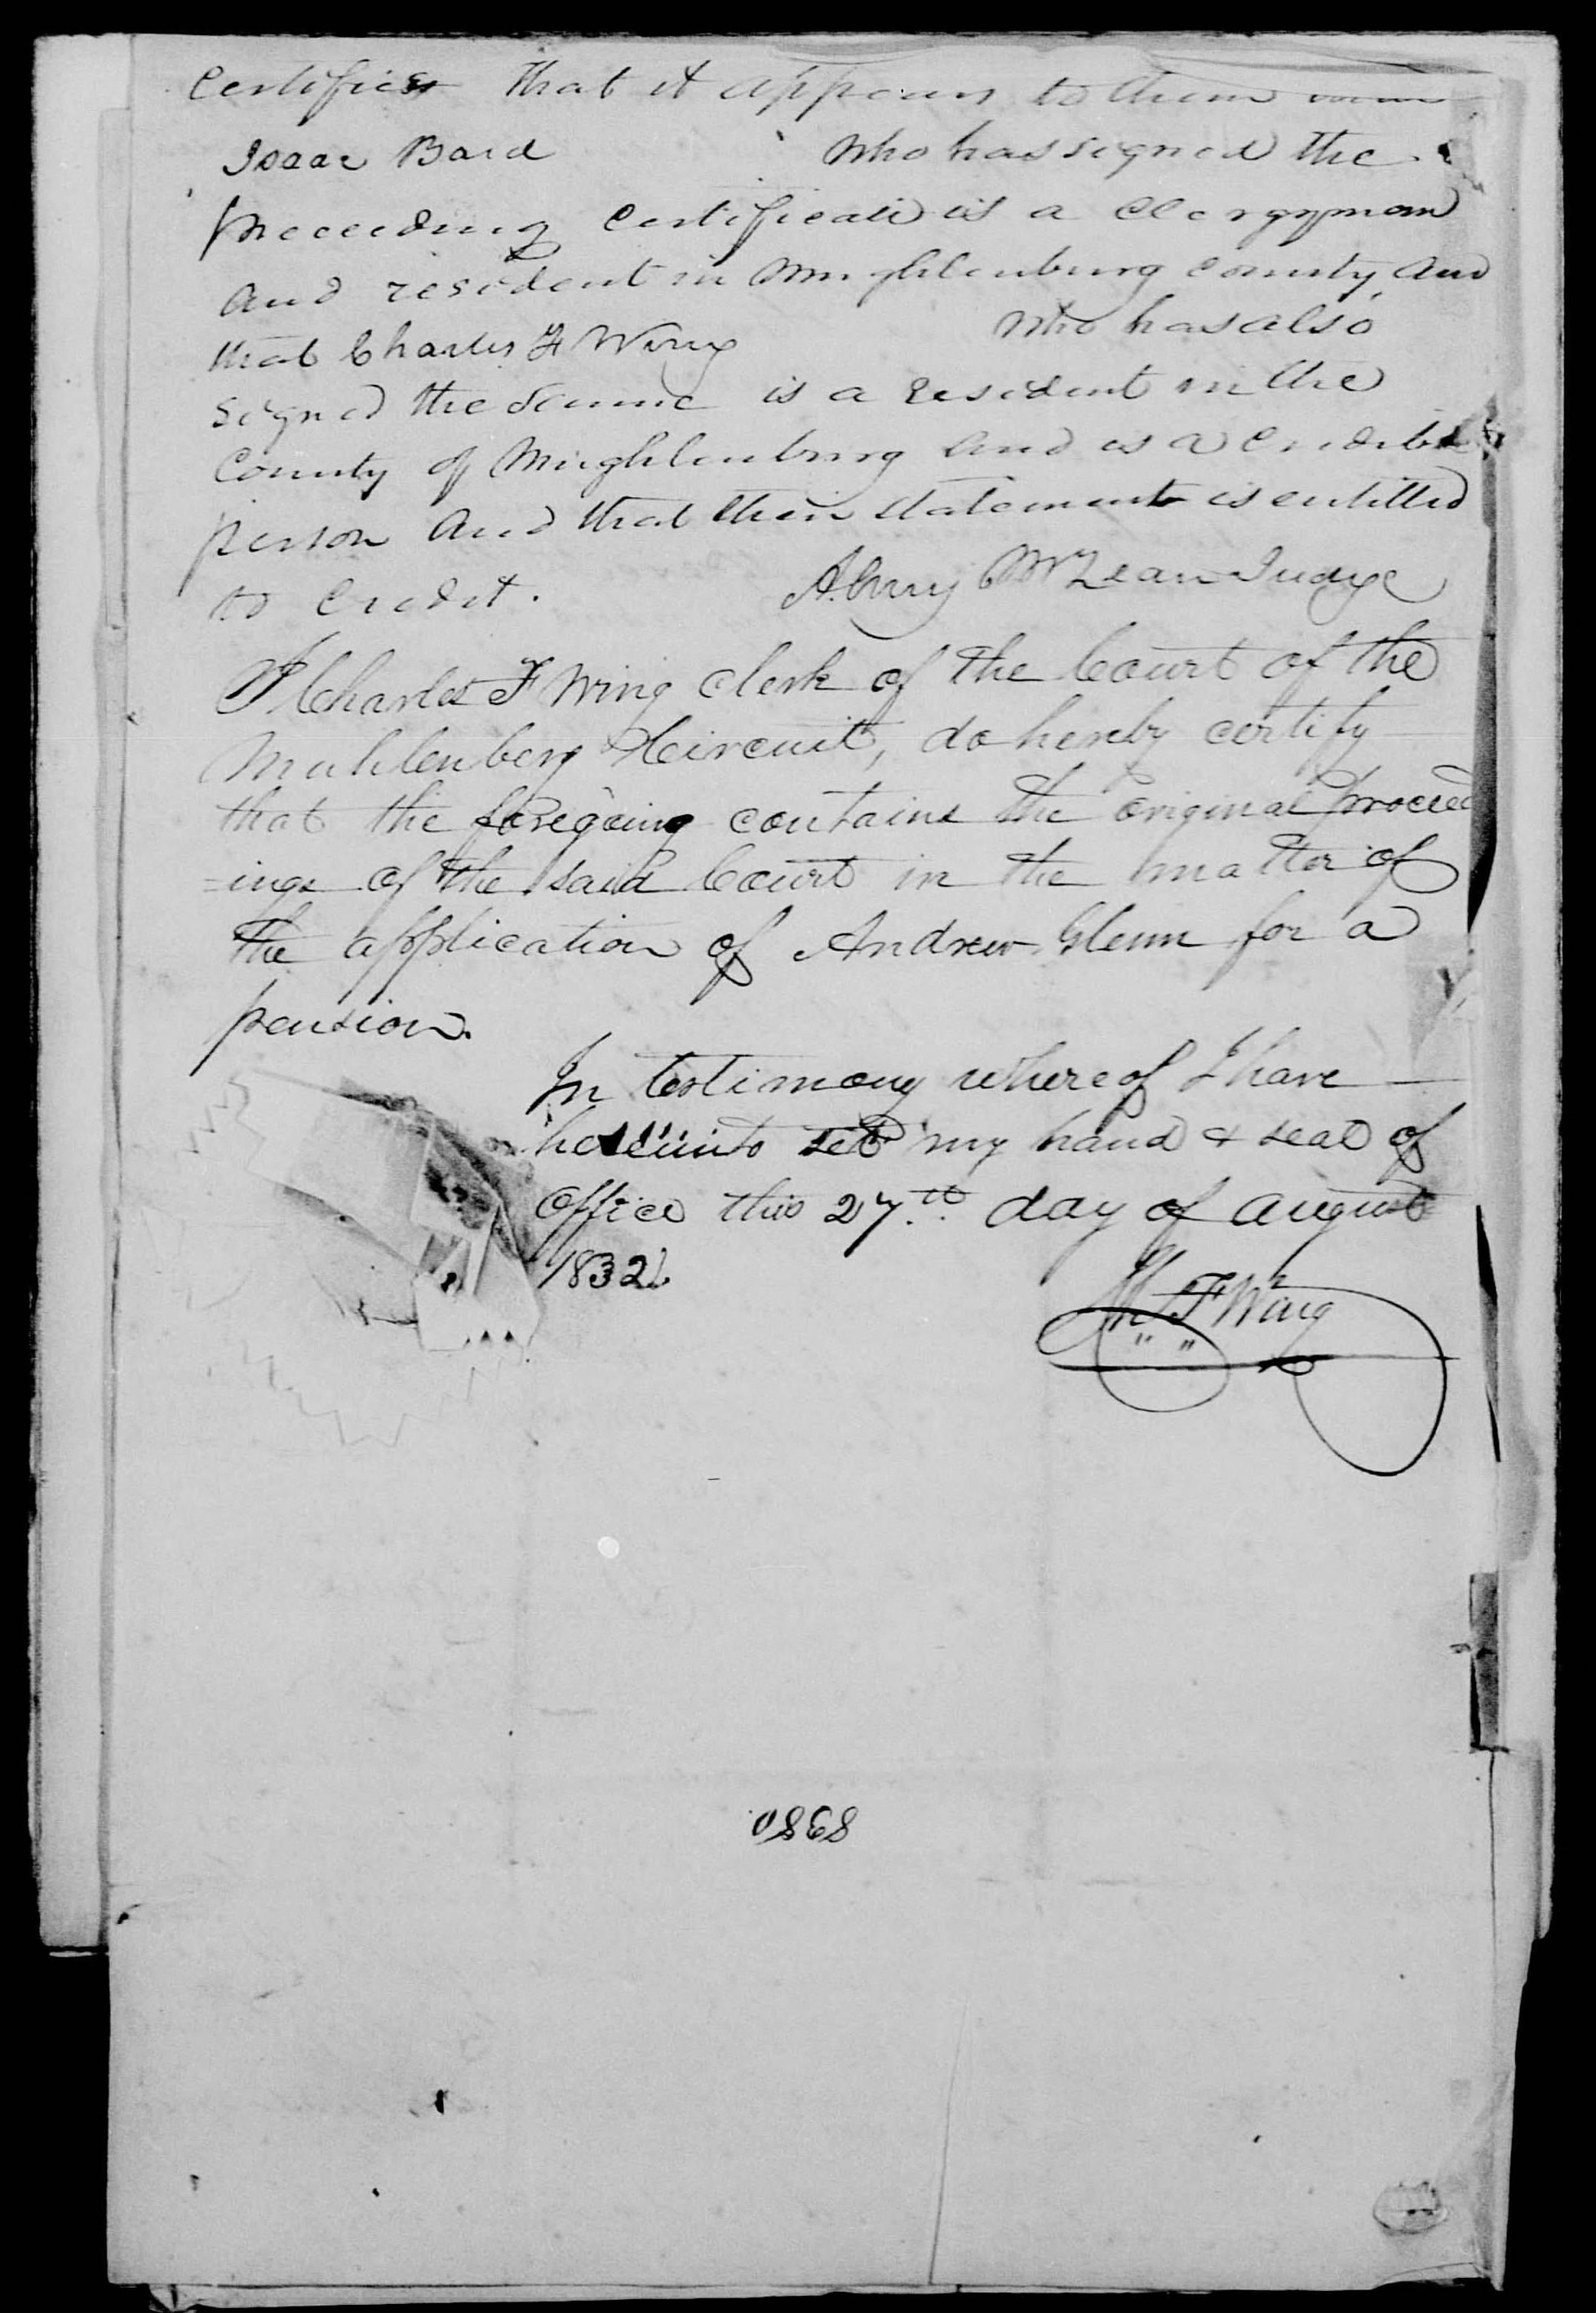 Certifies that it appears to them
Isaac Bard who has signed the
preceeding certificate is a Clergyman
and resident in Mughlenburg County and
that Charles F Wing who has also
signed the same is a resident in the
County of Mughlenburg and is a credible
person and that their statement is entitled
to credit. Alney McLean Judge
I Charles F Wing clerk of the Court of the
Muhlenberg Circuit, do hereby certify
that the foregoing contains the original proceed
=ings of the said Court in the matter of
the application of Andrew Glenn for a
pension.
In testimony whereof I have
hereunto set my hand & seal of
office this 27th day of august
1832.
Ch F Wing
8980